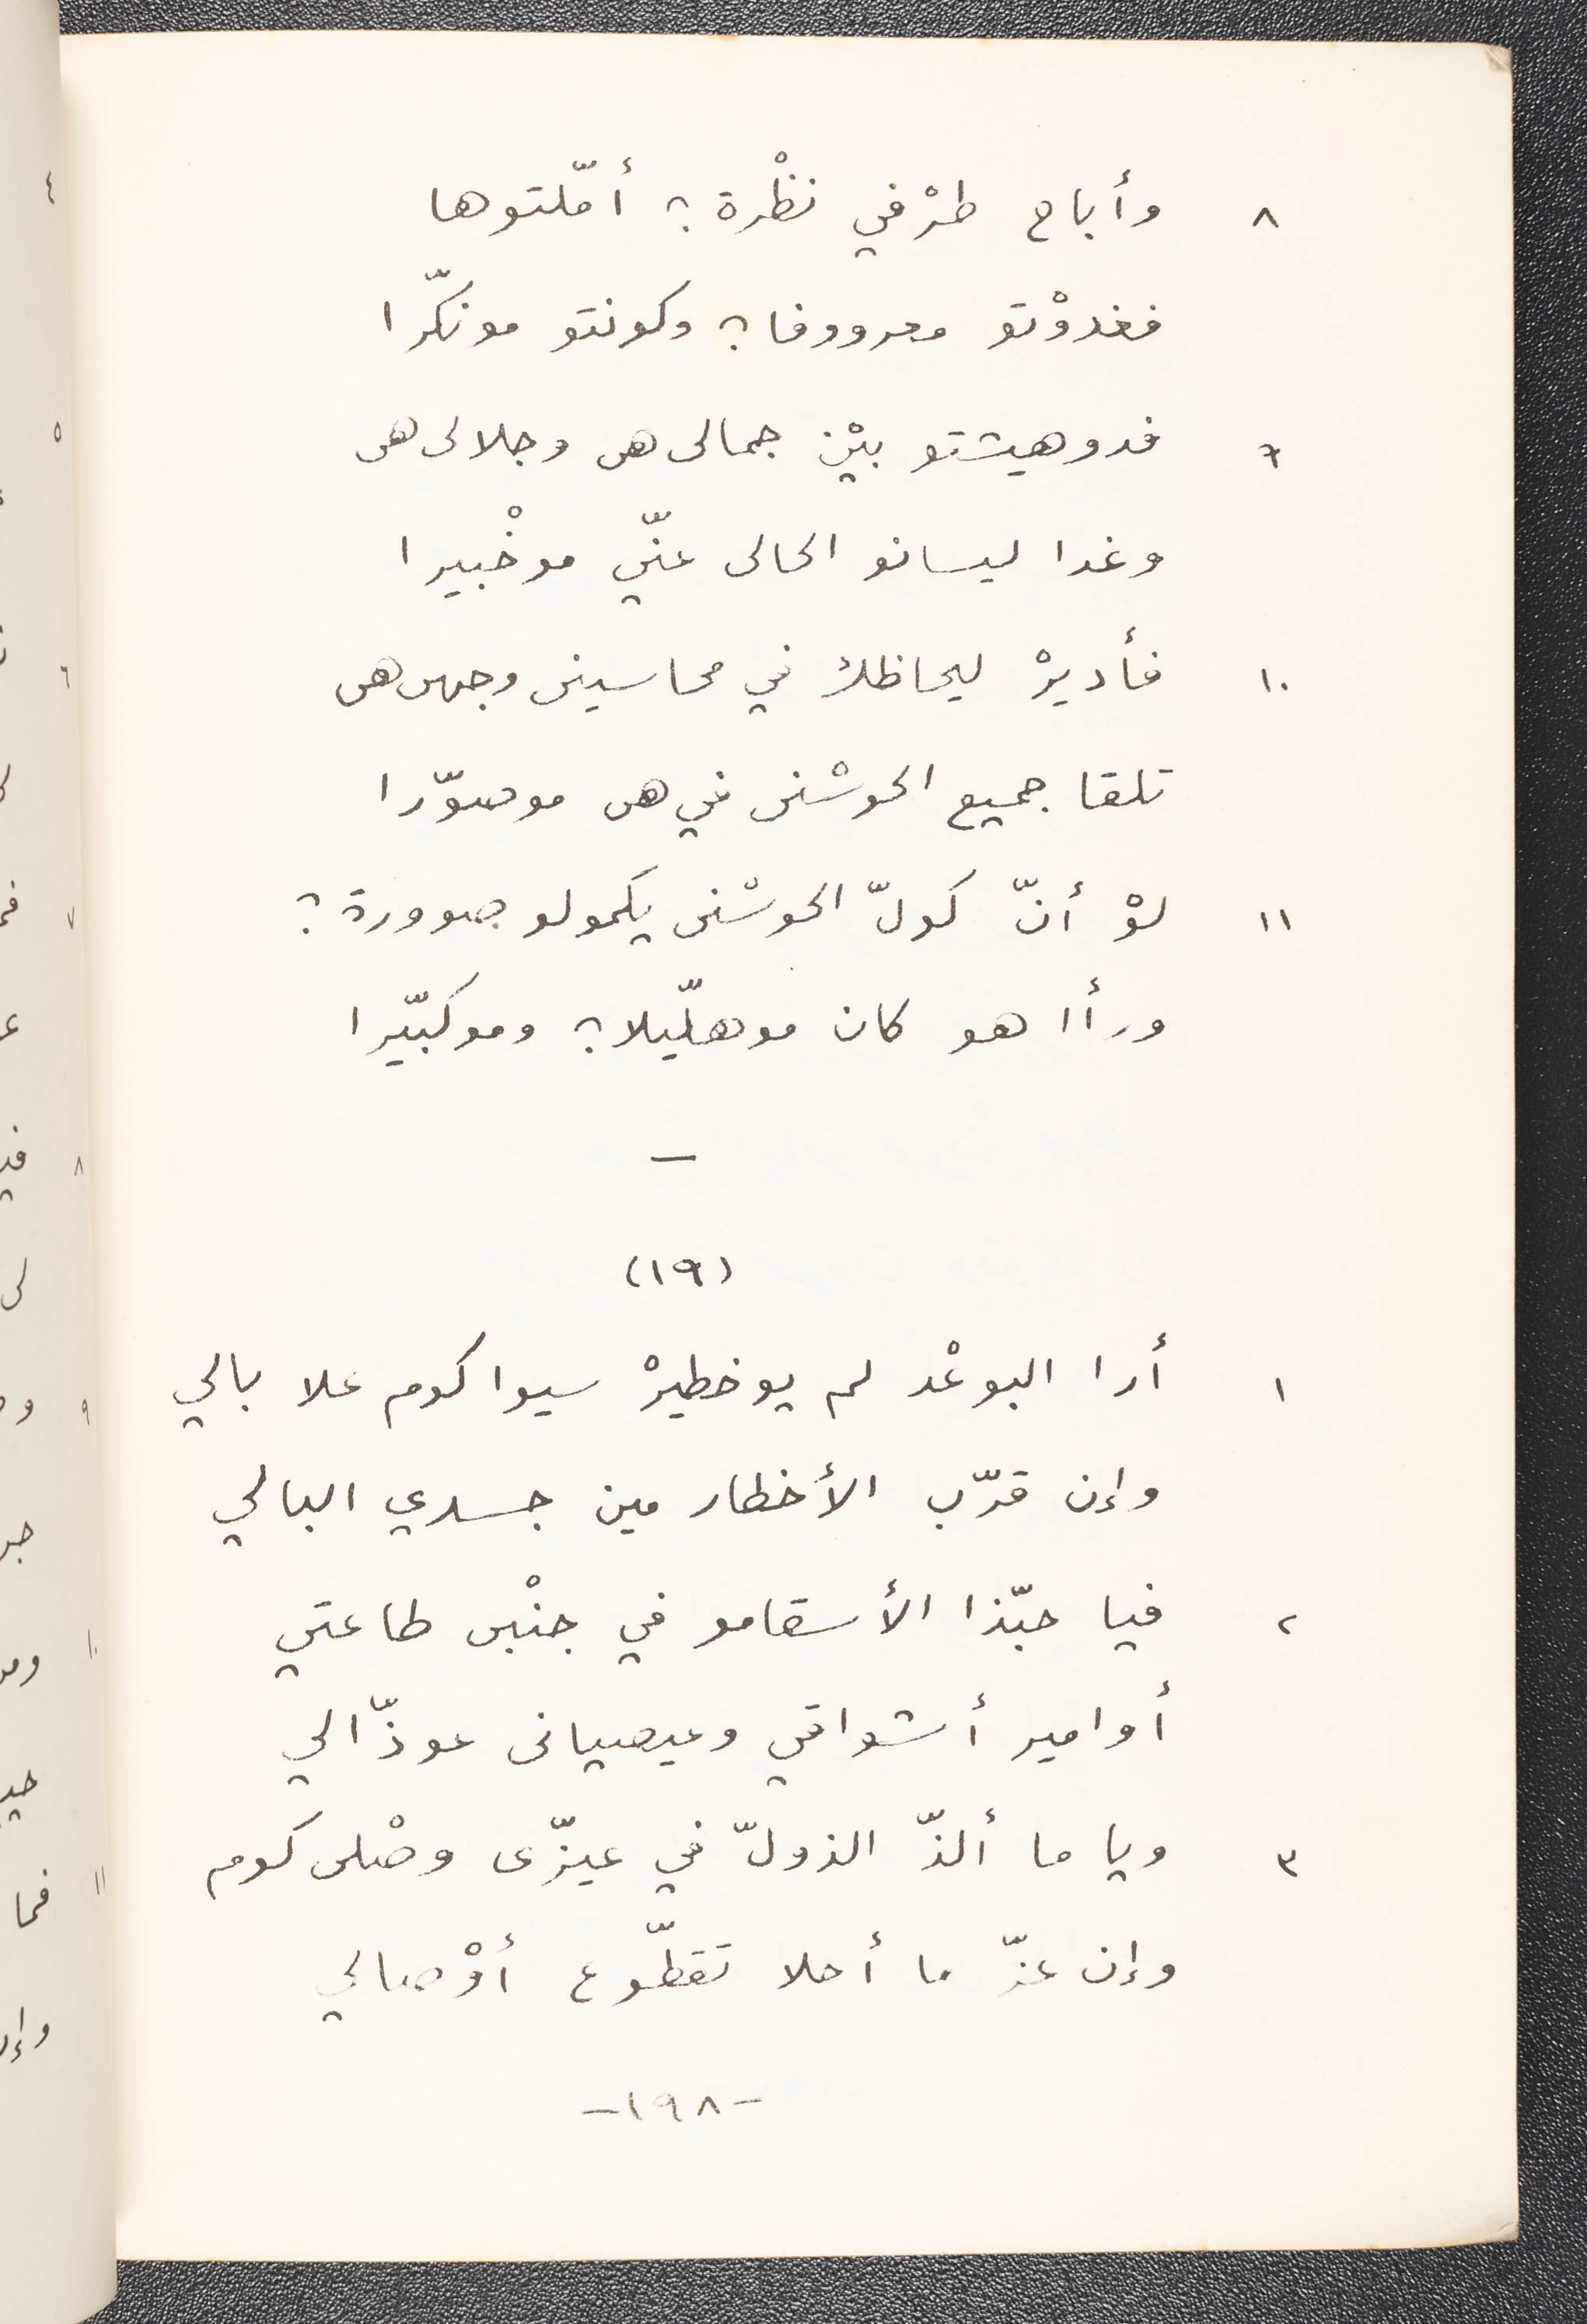 ٨ وأباح طرْفي نظْرة؟ أمّلتوها
فغدوْتو معرووفا؟ وكونتو مونكّرا
٩ فدوهيشتو بيْن جمالى هى وجلالى هى
وغدا ليسانو الحالى عنّي موخْبيرا
١٠ فأديرْ ليحاظك في محاسينى وجهى هى
تلقا جميع الحوسْنى في هى موصوّرا
١١ لوْ أنّ كولّ الحوسْنى يكمولو صوورة؟
ورأا هو كان موهلّيلا؟ وموكبّيرا
—
(١٩)
١ أرا البوعْد لم يوخطيرْ سيواكوم علا بالي
وإن قرّب الأخطار مين جسدي البالي
٢ فيا حبّذا الأسقامو في جنْبى طاعتي
أوامير أشواقي وعيصيانى عوذّالي
٣ ويا ما ألذّ الذولّ في عيزّى وصْلى كوم
وإن عزّ ما أحلا تقطّوع أوْصالي
-١٩٨-